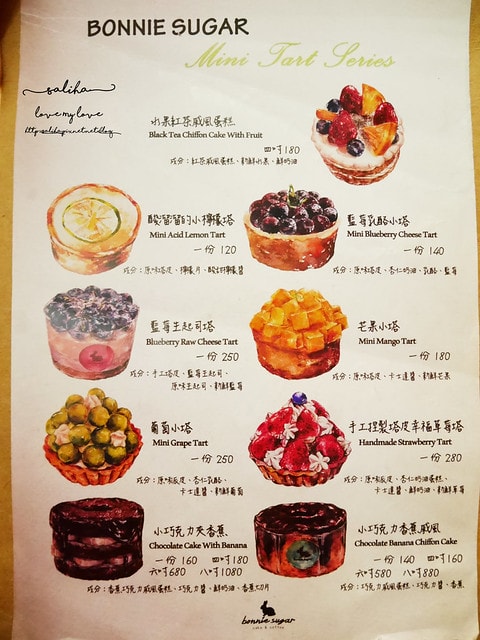 BONNIE SUGAR
Mini Tart Series
saliha
love my love
水果紅茶戚風蛋糕
Black Tea Chiffon Cake With Fruit
四吋180
成分：紅茶戚風蛋糕、新鮮水果、鮮奶油
酸溜溜的小檸檬塔
Mini Acid Lemon Tart
一份 120
成分：原味塔皮、檸檬片、酸甜檸檬醬
藍莓乳酪小塔
Mini Blueberry Cheese Tart
一份 140
成分：原味塔皮、杏仁奶油、乳酪、藍莓
藍莓王起司塔
Blueberry Raw Cheese Tart
一份 250
成分：手工塔皮、藍莓王起司、
原味王起司、新鮮藍莓
芒果小塔
Mini Mango Tart
一份 180
成分：原味塔皮、卡士達醬、新鮮芒果
葡萄小塔
Mini Grape Tart
一份 250
成分：原味塔皮、杏仁乳酪、
卡士達醬、新鮮葡萄
手工捏製塔皮幸福草莓塔
Handmade Strawberry Tart
一份 280
成分：原味派皮、杏仁奶油蛋糕、
卡士達醬、鮮奶油、新鮮草莓
小巧克力夾香蕉
Chocolate Cake With Banana
一份 160 四吋180
六吋680 八吋1080
成分：香蕉巧克力戚風蛋糕、巧克力醬、鮮奶油、香蕉切片
小巧克力香蕉戚風
Chocolate Banana Chiffon Cake
一份 140 四吋160
六吋580 八吋880
成分：巧克力戚風蛋糕、巧克力醬、香蕉
bonnie sugar
cake & coffee